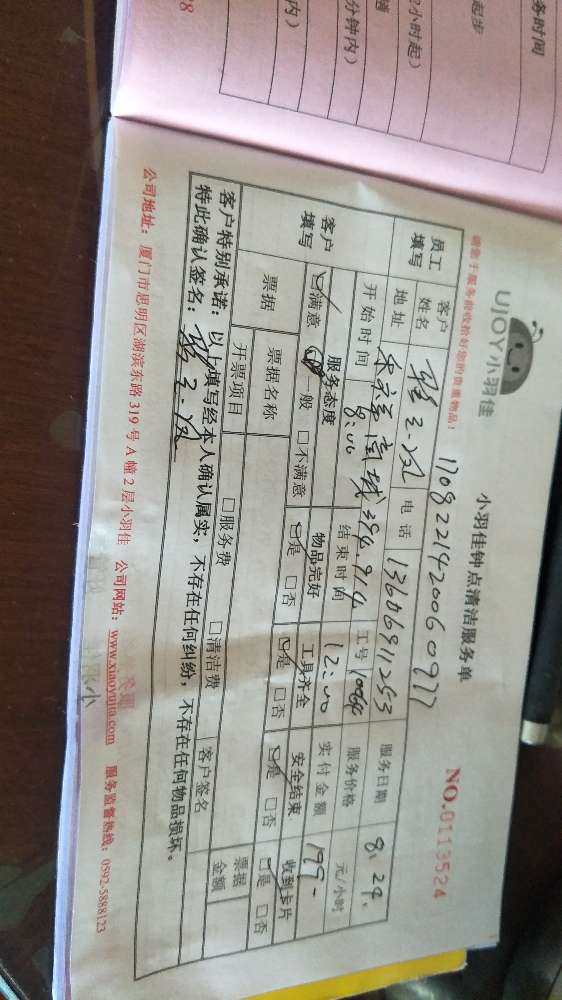 务时间
起步
2小时起）
分钟内）
内）
78
UJOY小羽佳
小羽佳钟点清洁服务单
NO.0113524
请您于服务前收拾好您的贵重物品！
1708221420060977
员工填写
客户姓名
电话
13606911253
服务日期
8.24.
地址
工号
服务价格
元/小时
开始时间
8:00
结束时间
12:00
实付金额
199-
客户填写
服务态度
物品完好
工具齐全
安全结束
收到卡片
满意 一般 □不满意
是 □否
是 □否
是 □否
是 □否
票据
票据名称
开票项目
□服务费
□清洁费
客户签名
票据金额
客户特别承诺：以上填写经本人确认属实，不存在任何纠纷，不存在任何物品损坏。
特此确认签名：
公司地址：厦门市思明区湖滨东路319号A幢2层小羽佳 公司网站：www.xiaoyujia.com 服务监督热线：0592-5888123